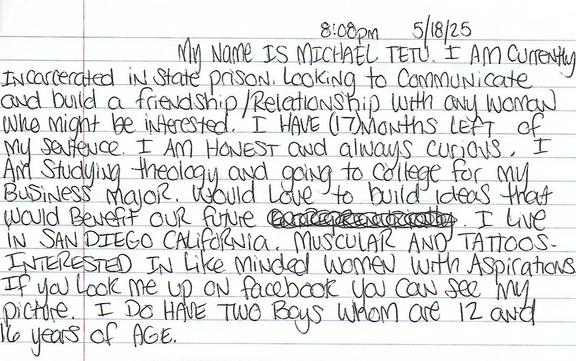 8:08pm 5/18/25
My Name IS MICHAEL TETU. I AM Currently
Incarcerated in State prison. Looking to Communicate
and build a friendship/Relationship with any woman
who might be interested. I HAVE (17) Months LEFT of
my sentence. I AM HONEST and always curious. I
Am Studying theology and going to College for my
Business Major. Would Love to build ideas that
would Benefit our future . I Live
in SAN DIEGO CALIFORNIA. MUSCULAR AND TATTOOS-
INTERESTED IN Like Minded Women with Aspirations
If you Look me up on facebook you can see my
picture. I DO HAVE TWO Boys whom are 12 and
16 years of AGE.